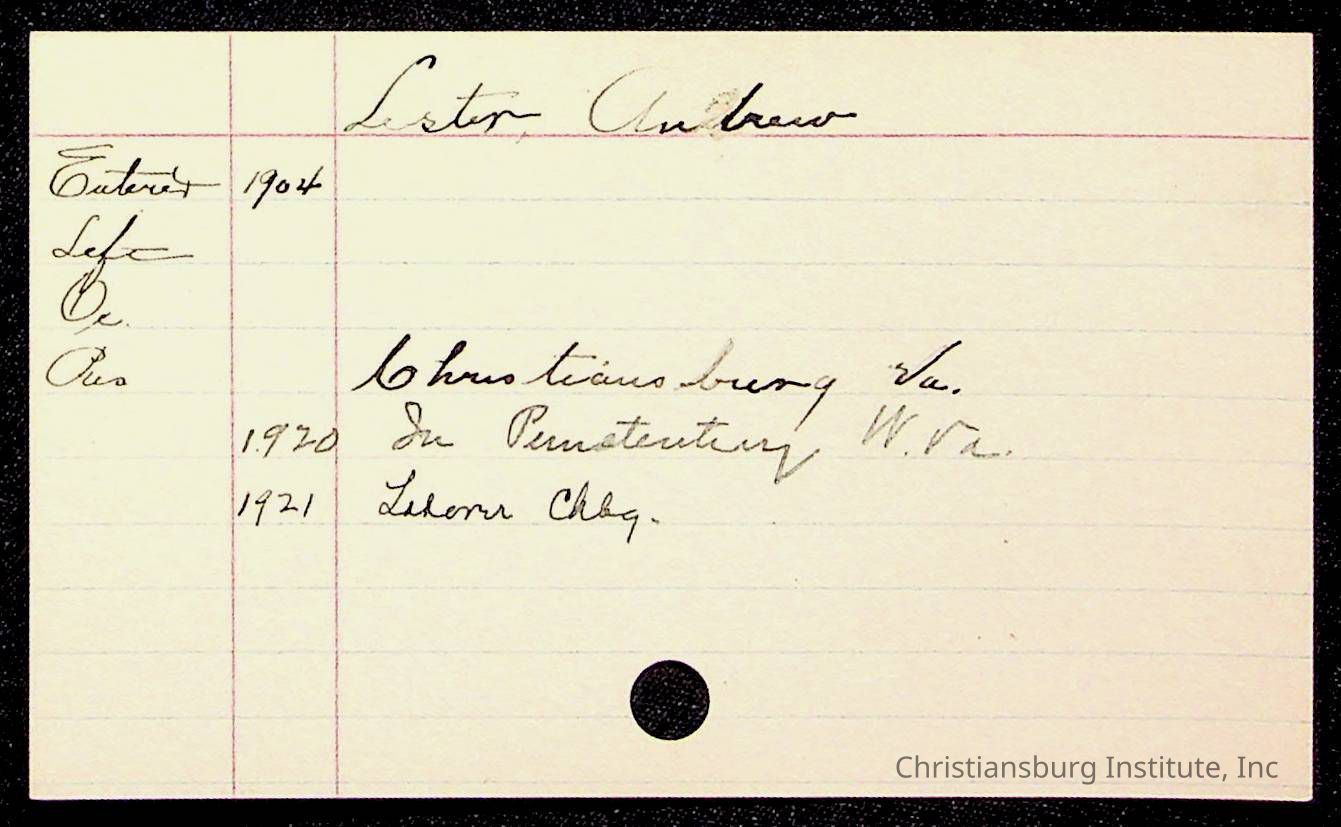 Lester, Andrew
Entered 1904
Left
Oc.
Pres Christiansburg Va.
1920 In Penetentiary W. Va.
1921 Laborer Chbg.
Christiansburg Institute, Inc